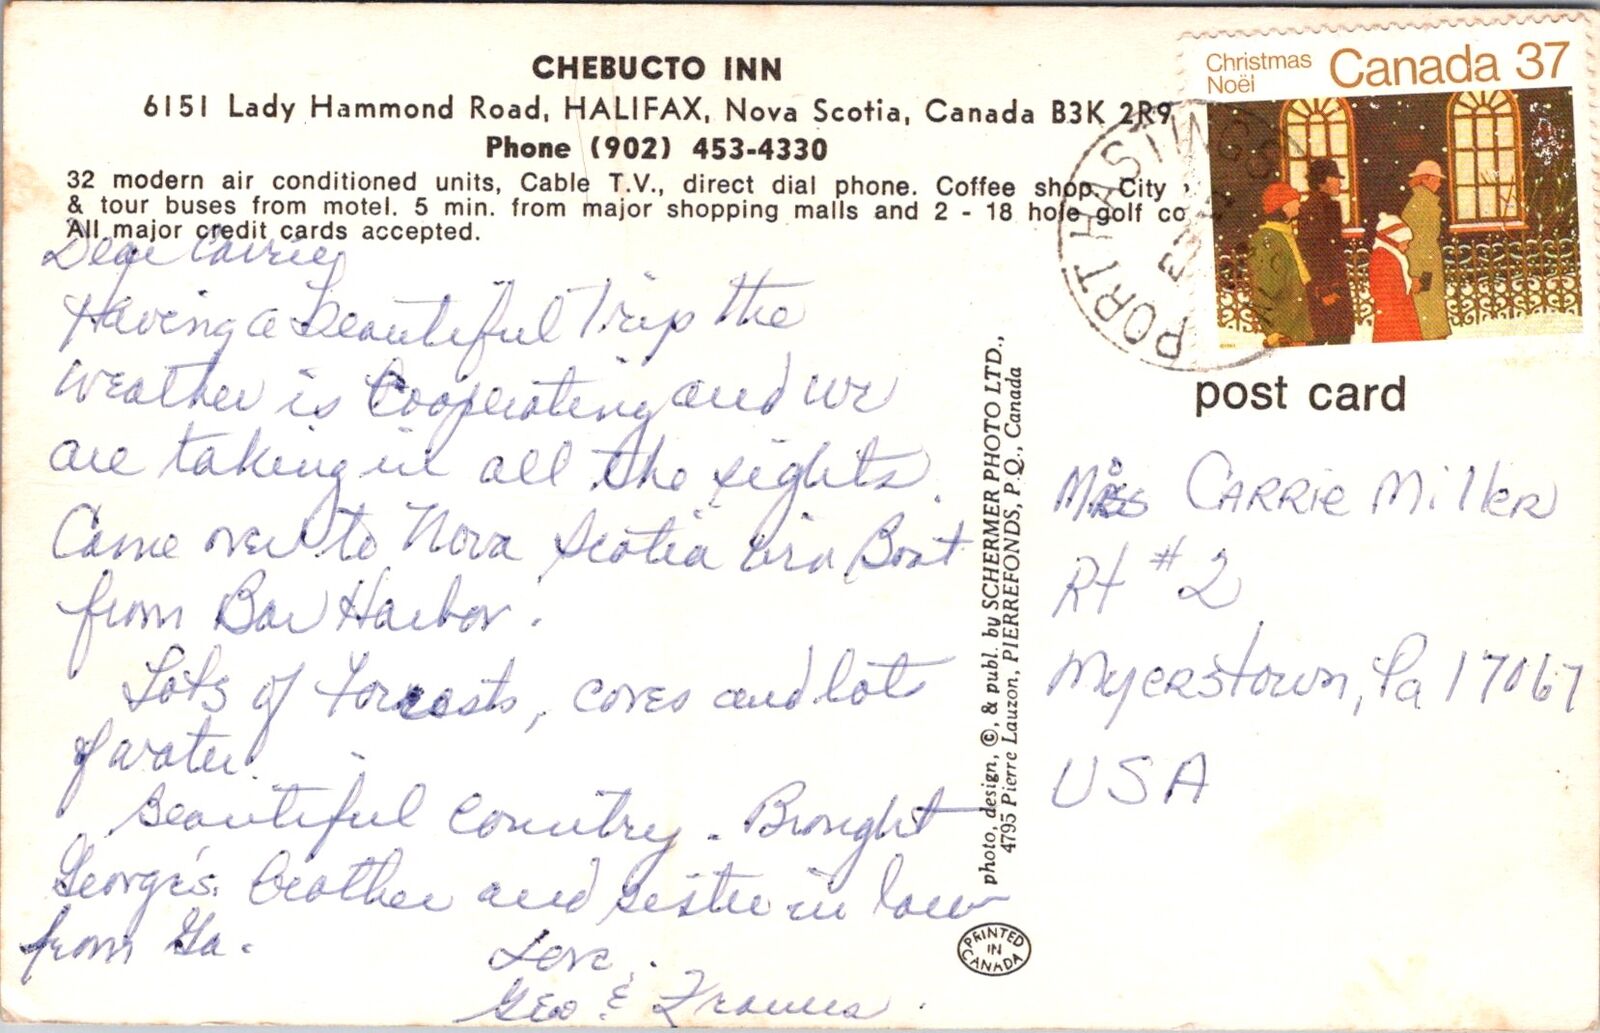 CHEBUCTO INN
6151 Lady Hammond Road, HALIFAX, Nova Scotia, Canada B3K 2R9
Phone (902) 453-4330
32 modern air conditioned units, Cable T.V., direct dial phone. Coffee shop, City
& tour buses from motel. 5 min. from major shopping malls and 2 - 18 hole golf co
All major credit cards accepted.
Dear Carrie,
Having a Beautiful Trip the
weather is Cooperating and we
are taking in all the sights.
Came over to Nova Scotia via Boat
from Bar Harbor.
Lots of Forests, coves and lots
of water.
Beautiful Country. Brought
George's brother and sister in law
from Ga.
Love,
Geo & Frances.
photo, design, ©, & publ. by SCHERMER PHOTO LTD.,
4795 Pierre Lauzon, PIERREFONDS, P.Q., Canada
PRINTED
IN
CANADA
Christmas
Noël
Canada 37
PORT HASTINGS
post card
Miss CARRIE Miller
Rt #2
Myerstown, Pa 17067
USA